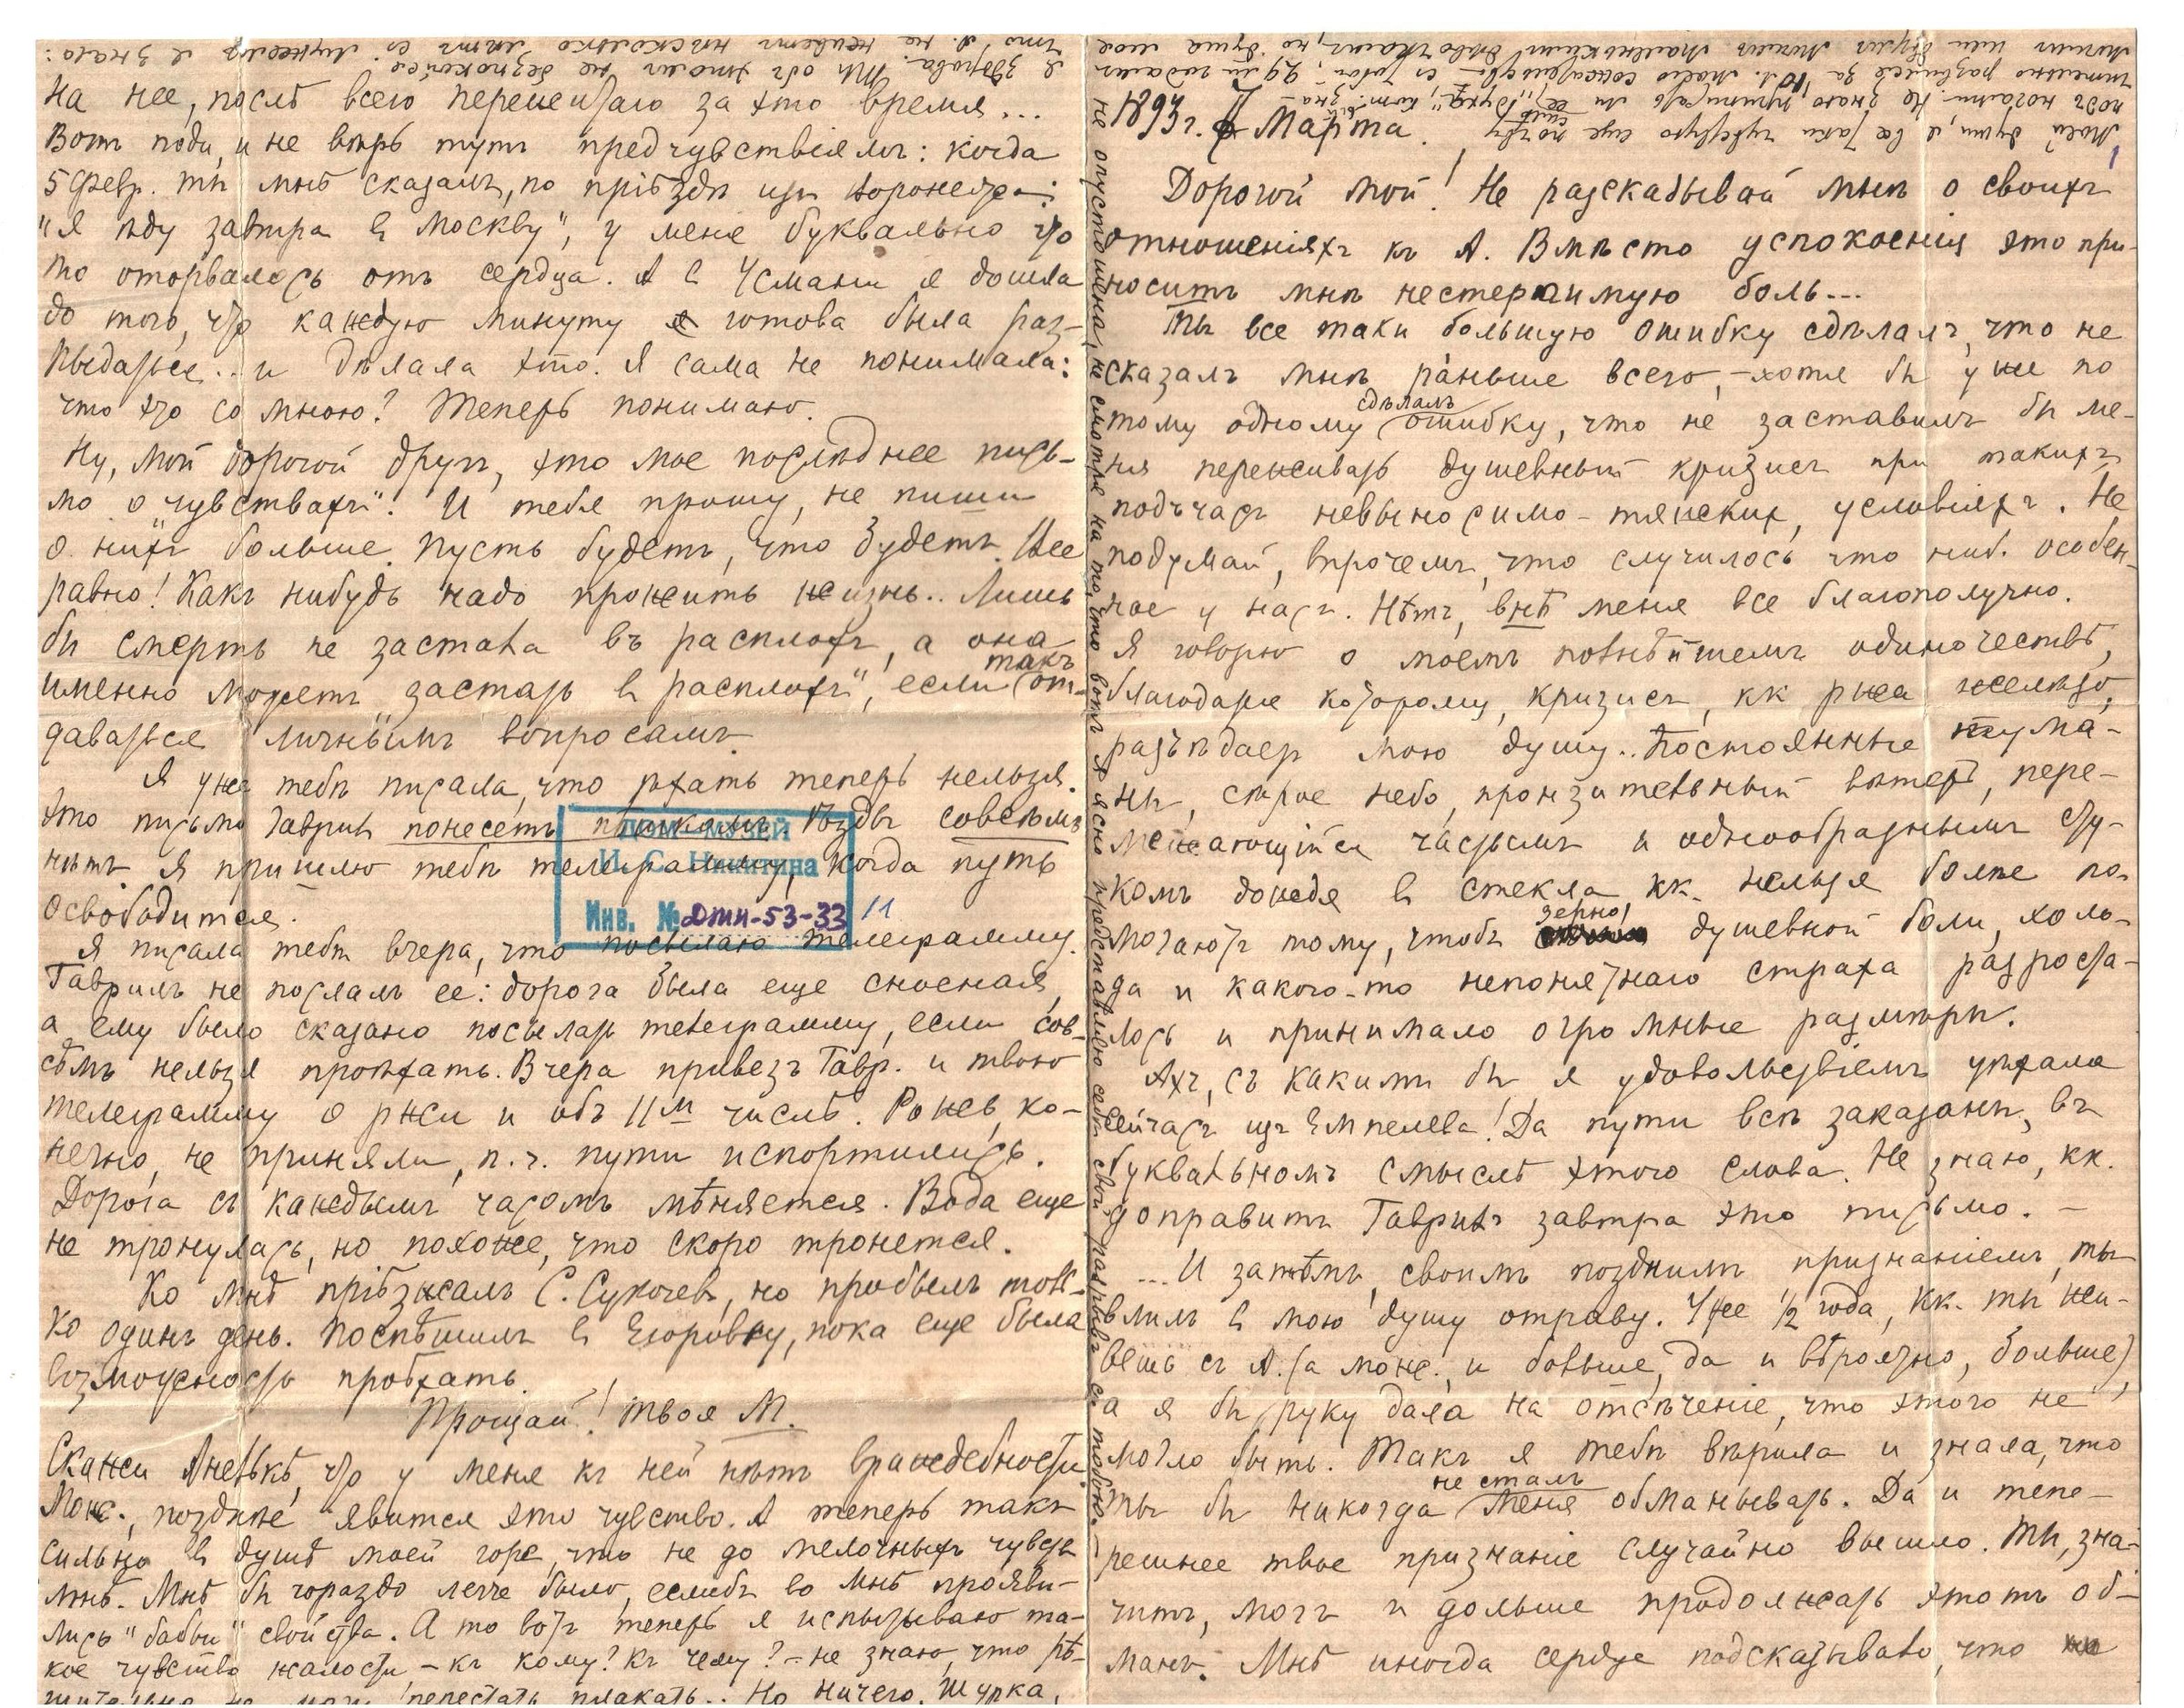 1893 г. 7 Марта.
Дорогой мой! Не разсказывай мнѣ о своихъ
отношеніяхъ къ А. Вмѣсто успокоенія это при-
носитъ мнѣ нестерпимую боль...
Ты все таки большую ошибку сдѣлалъ, что не
сказалъ мнѣ раньше всего, – хотя бы уже по
тому одному сдѣлалъ ошибку, что не заставилъ бы ме-
ня переживать душевный кризисъ при такихъ
подъчасъ невыносимо-тяжкихъ условіяхъ. Не
подумай, впрочемъ, что случилось что ниб. особен-
ное у насъ. Нѣтъ, внѣ меня все благополучно.
Я говорю о моемъ полнѣйшемъ одиночествѣ,
благодаря которому, кризисъ, кк ржа желѣзо,
разъѣдаетъ мою душу.. Постоянные тума-
ны, сѣрое небо, пронзительный вѣтеръ, пере-
межающійся частымъ и однообразнымъ сту-
комъ дождя в стекла кк. нельзя болѣе по-
могаютъ тому, чтобы зерно душевной боли, холо-
да и какого-то непонятнаго страха разроста-
лось и принимало огромные размѣры.
Ахъ, съ какимъ бы я удовольствіемъ уѣхала
сейчасъ изъ Емпелева! Да пути всѣ заказаны, въ
буквальномъ смыслѣ этого слова. Не знаю, кк.
доправитъ Гаврилъ завтра это письмо. –
... И затѣмъ, своимъ позднимъ признаніемъ, ты
влилъ в мою душу отраву. Уже 1/2 года, кк. ты жи-
вешь съ А. (а може., и больше, да и вѣроятно, больше),
а я бы руку дала на отсѣченіе, что этого не
могло быть. Такъ я тебѣ вѣрила и знала, что
ты бы никогда не сталъ меня обманывать. Да и тепе-
решнее твое признаніе случайно вышло. Ты, зна-
читъ, могъ и дольше продолжать этотъ об-
манъ. Мнѣ иногда сердце подсказывало, что
на нее, послѣ всего пережитаго за это время...
Вотъ поди, и не вѣрь тутъ предчувствіямъ: когда
5 Февр. ты мнѣ сказалъ, по пріѣздѣ изъ Воронежа:
"я ѣду завтра в Москву", у меня буквально что
то оторвалось отъ сердца. А в Усмани я дошла
до того, что каждую минуту готова была раз-
рыдаться.. и дѣлала это. Я сама не понимала:
что это со мною? Теперь понимаю.
Ну, мой дорогой другъ, это мое послѣднее пись-
мо о "чувствахъ". И тебя прошу, не пиши
о нихъ больше. Пусть будетъ, что будетъ. Все
равно! Какъ нибудь надо прожить жизнь.. Лишь
бы смерть не застала въ расплохъ, а она
именно можетъ "застать в расплохъ", если такъ от-
даваться личнымъ вопросамъ.
Я уже тебѣ писала, что ѣхать теперь нельзя.
Это письмо Гаврилъ понесетъ пѣшкомъ. Ѣзды совсѣмъ
нѣтъ. Я пришлю тебѣ телеграмму, когда путь
освободится.
ДОМ-МУЗЕЙ
И. С. Никитина
Инв. № Дтн-53-33/11
Я писала тебѣ вчера, что посылаю телеграмму.
Гаврилъ не послалъ ее: дорога была еще сносная,
а ему было сказано посылать телеграмму, если сов-
сѣмъ нельзя проѣхать. Вчера привезъ Гавр. и твою
телеграмму о ржи и объ 11м числѣ. Рожь, ко-
нечно, не приняли, п. ч. пути испортились.
Дорога съ каждымъ часомъ мѣняется. Вода еще
не тронулась, но похоже, что скоро тронется.
Ко мнѣ пріѣзжалъ С. Сукочев, но пробылъ толь-
ко одинъ день. Поспѣшилъ в Егоровку, пока еще была
возможность проѣхать.
Прощай! Твоя М.
Скажи Анеткѣ, что у меня къ ней нѣтъ враждебности.
Може., позднѣе явится это чувство. А теперь такъ
сильно в душѣ моей горе, что не до мелочныхъ чувствъ
мнѣ. Мнѣ бы гораздо легче было, еслибъ во мнѣ прояви-
лись "бабьи" свойства. А то вотъ теперь я испытываю та-
кое чувство жалости – къ кому? Къ чему? – не знаю, что рѣ-
шительно не могу перестать плакать.. Но ничего, Шурка,
я здорова. Ты объ этомъ не безпокойся.
не опустошена, не смотря на то, что вотъ я ясно представляю себѣ свой разрывъ съ тобою.